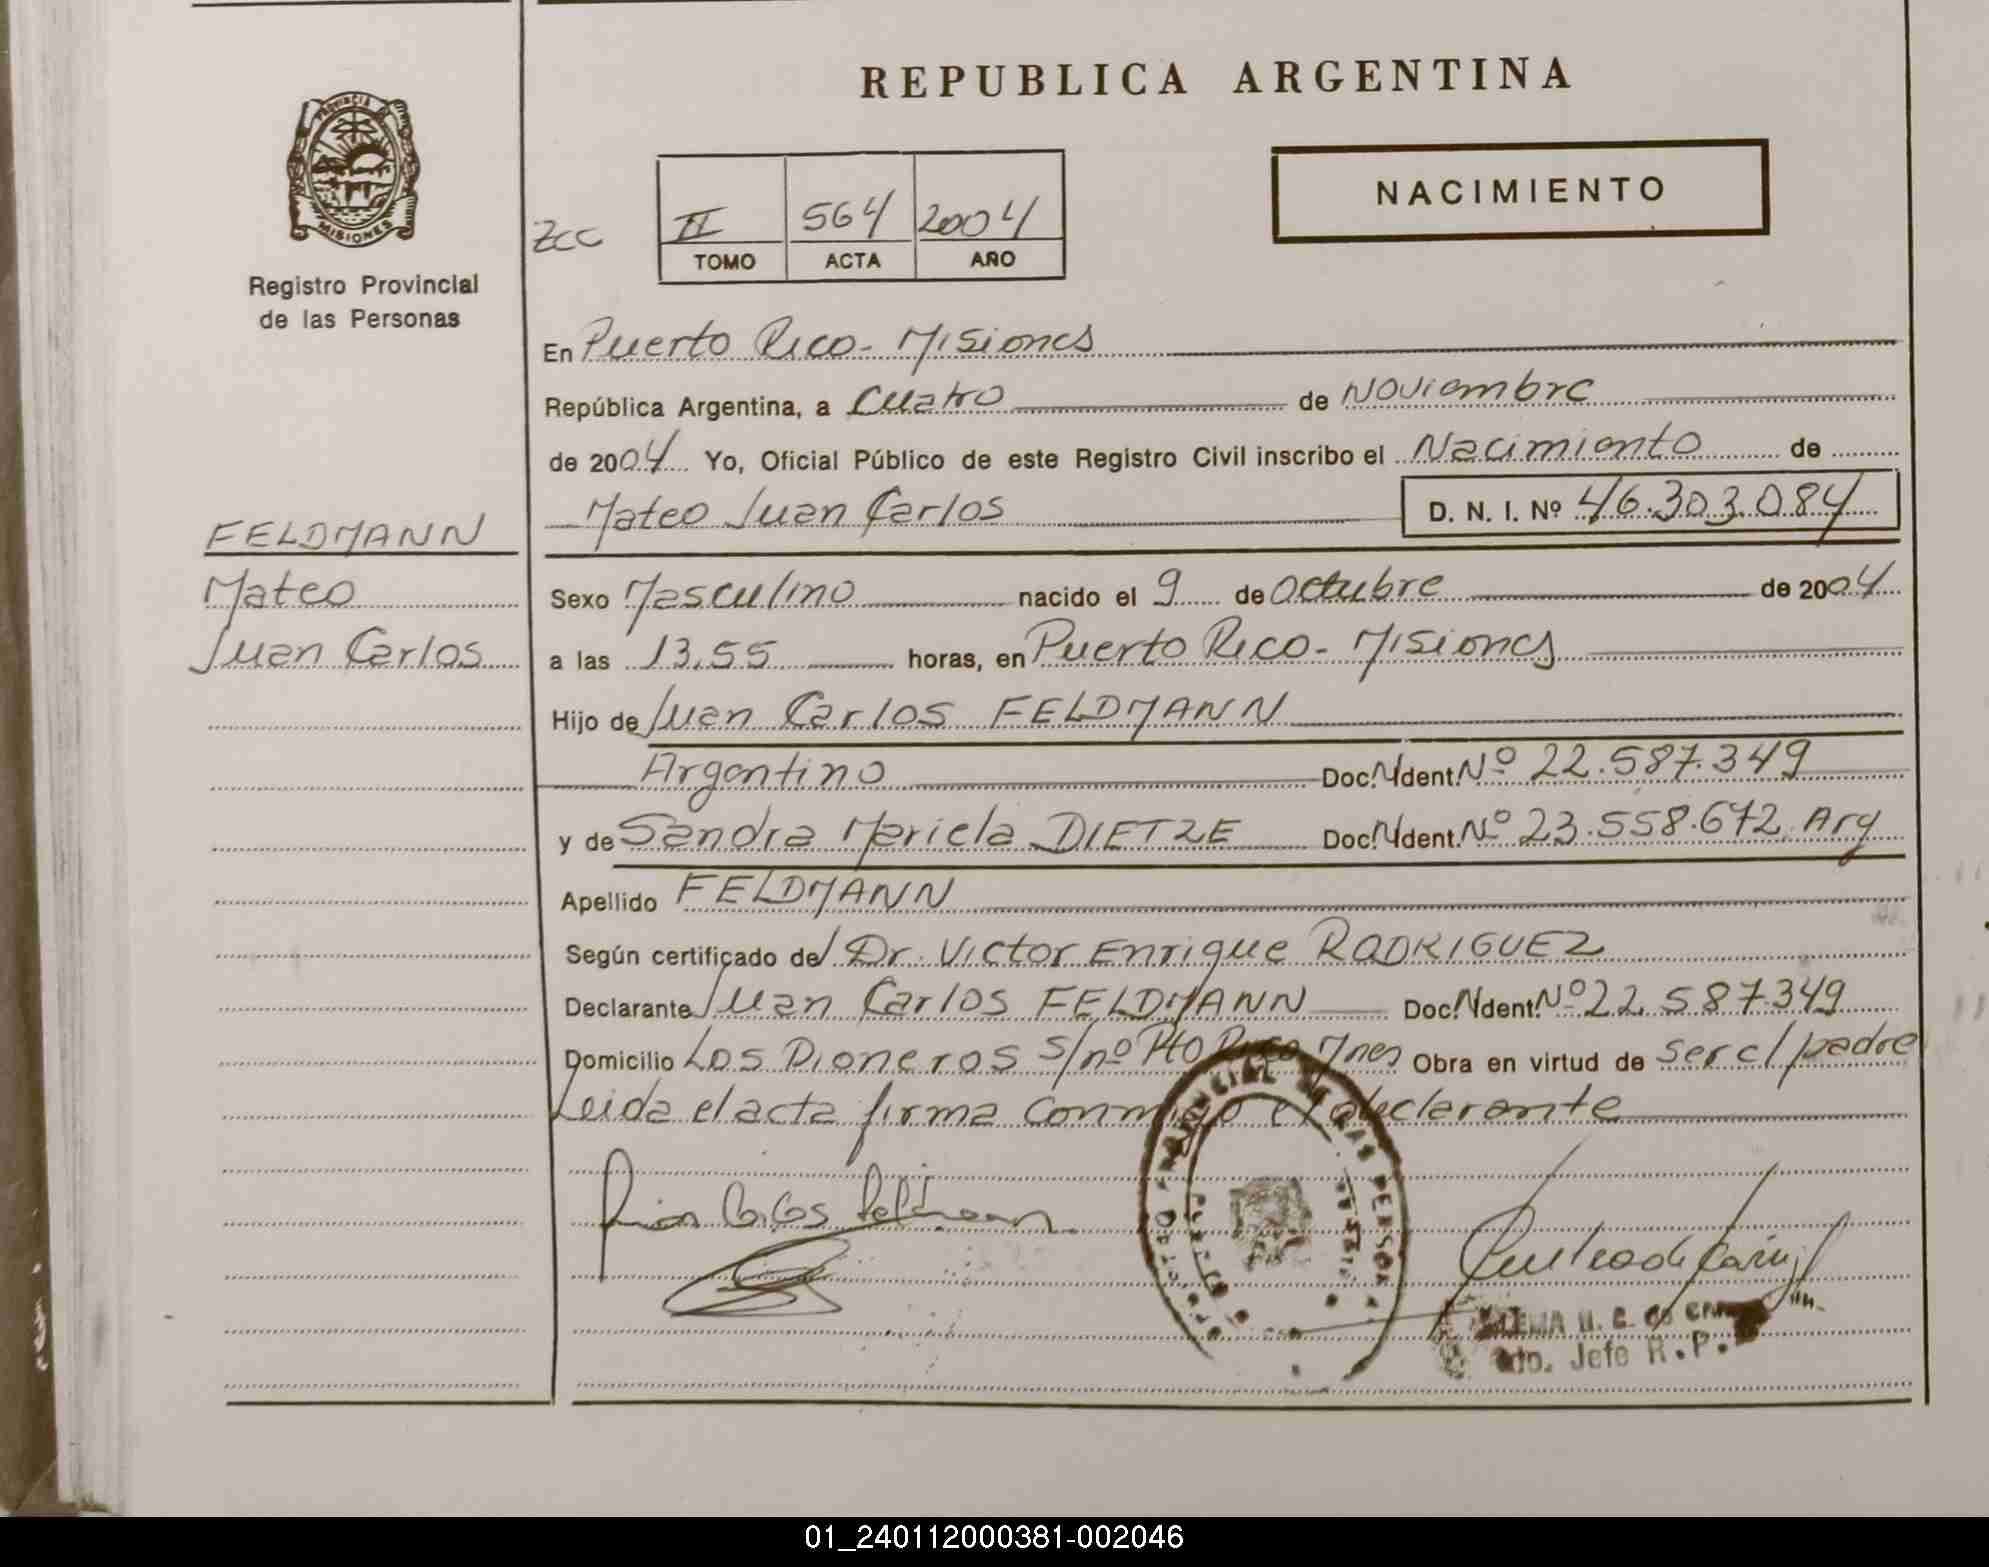 REPUBLICA ARGENTINA
PROVINCIA DE MISIONES
Registro Provincial
de las Personas
NACIMIENTO
Zcc
II 564 2004
TOMO ACTA AÑO
En Puerto Rico - Misiones
República Argentina, a Cuatro de Noviembre
de 2004 Yo, Oficial Público de este Registro Civil inscribo el Nacimiento de
Mateo Juan Carlos D. N. I. Nº 46.303.084
FELDMANN
Mateo
Juan Carlos
Sexo Masculino nacido el 9 de Octubre de 2004
a las 13.55 horas, en Puerto Rico - Misiones
Hijo de Juan Carlos FELDMANN
Argentino Doc. N Ident. Nº 22.587.349
y de Sandra Mariela DIETZE Doc. N Ident. Nº 23.558.672 Arg
Apellido FELDMANN
Según certificado de/ Dr. Victor Enrique RODRIGUEZ
Declarante Juan Carlos FELDMANN Doc. N Ident. Nº 22.587.349
Domicilio Los Pioneros s/nº Pto Rico Mnes Obra en virtud de ser el padre
Leida el acta firma conmigo el declarante
Juan Carlos Feldmann
REGISTRO PROVINCIAL DE LAS PERSONAS
Jefe R.P.
01_240112000381-002046